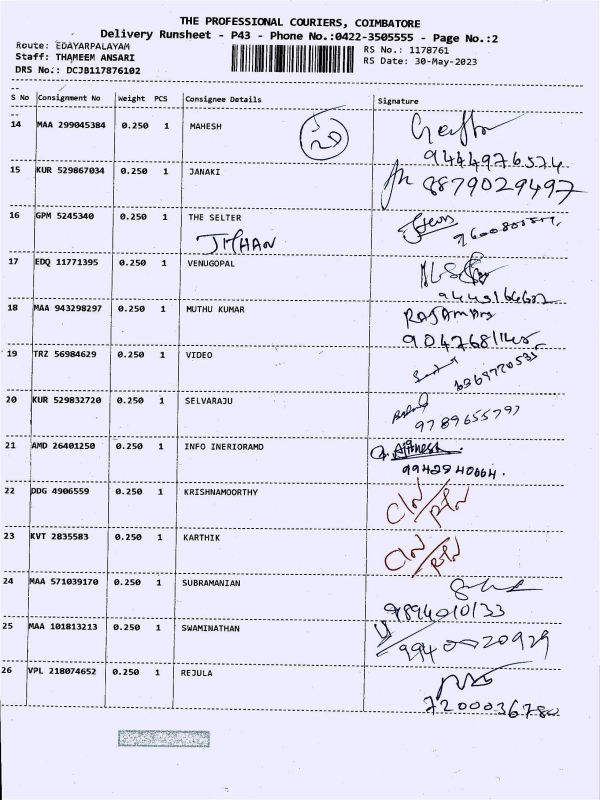 THE PROFESSIONAL COURIERS, COIMBATORE
Delivery Runsheet - P43 - Phone No.:0422-3505555 - Page No.:2
Route: EDAYARPALAYAM
RS No.: 1178761
Staff: THAMEEM ANSARI
RS Date: 30-May-2023
DRS No.: DCJB117876102
S No Consignment No Weight PCS Consignee Details Signature
14 MAA 299045384 0.250 1 MAHESH
9444976574
15 KUR 529867034 0.250 1 JANAKI
8879029497
16 GPM 5245340 0.250 1 THE SELTER
JIHAN
17 EDQ 11771395 0.250 1 VENUGOPAL
18 MAA 943298297 0.250 1 MUTHU KUMAR
19 TRZ 56984629 0.250 1 VIDEO
20 KUR 529832720 0.250 1 SELVARAJU
9789655797
21 AMD 26401250 0.250 1 INFO INERIORAMD
9942940664.
22 DDG 4906559 0.250 1 KRISHNAMOORTHY
23 KVT 2835583 0.250 1 KARTHIK
24 MAA 571039170 0.250 1 SUBRAMANIAN
9894010133
25 MAA 101813213 0.250 1 SWAMINATHAN
9940020929
26 VPL 218074652 0.250 1 REJULA
7200036780